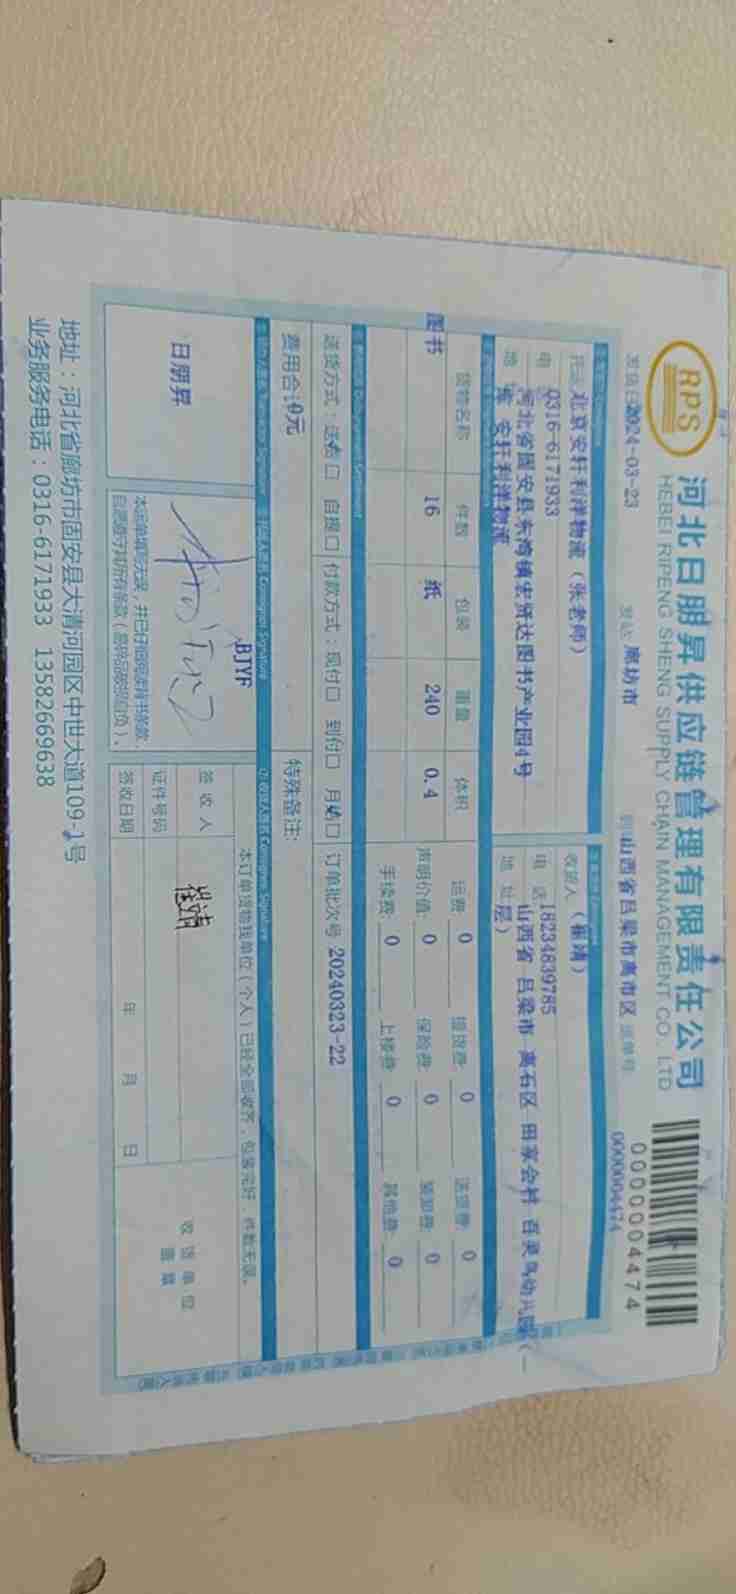 RPS
河北日朋昇供应链管理有限责任公司
HEBEI RIPENG SHENG SUPPLY CHAIN MANAGEMENT CO. LTD
0000004474
发货日 2024-03-23 发站 廊坊市 到 山西省吕梁市离市区 运单号: 0000004474
北京安轩利洋物流（张老师）
电 0316-6171933
河北省固安县东湾镇宏贤达图书产业园4号
库 安轩利洋物流
收货人 （崔靖）
电 话 18234839785
地 址 山西省 吕梁市 离石区 田家会村 百灵鸟幼儿园（一
层）
货物名称 件数 包装 重量 体积
图书 16 纸 240 0.4
运费: 0 提货费: 0 送货费: 0
声明价值: 0 保险费: 0 装卸费: 0
手续费: 0 上楼费: 0 其他费: 0
送货方式: 自提口 付款方式: 现付口 到付口 订单批次号 20240323-22
费用合计 0元 特殊备注:
日朋昇
BJYF
本订单货物我单位（个人）已经全部收齐，包装完好，件数无误。
签 收 人 崔靖
证件号码
签收日期 年 月 日
收 货 单 位
盖 章
地址：河北省廊坊市固安县大清河园区中世大道109-1号
业务服务电话：0316-6171933 13582669638